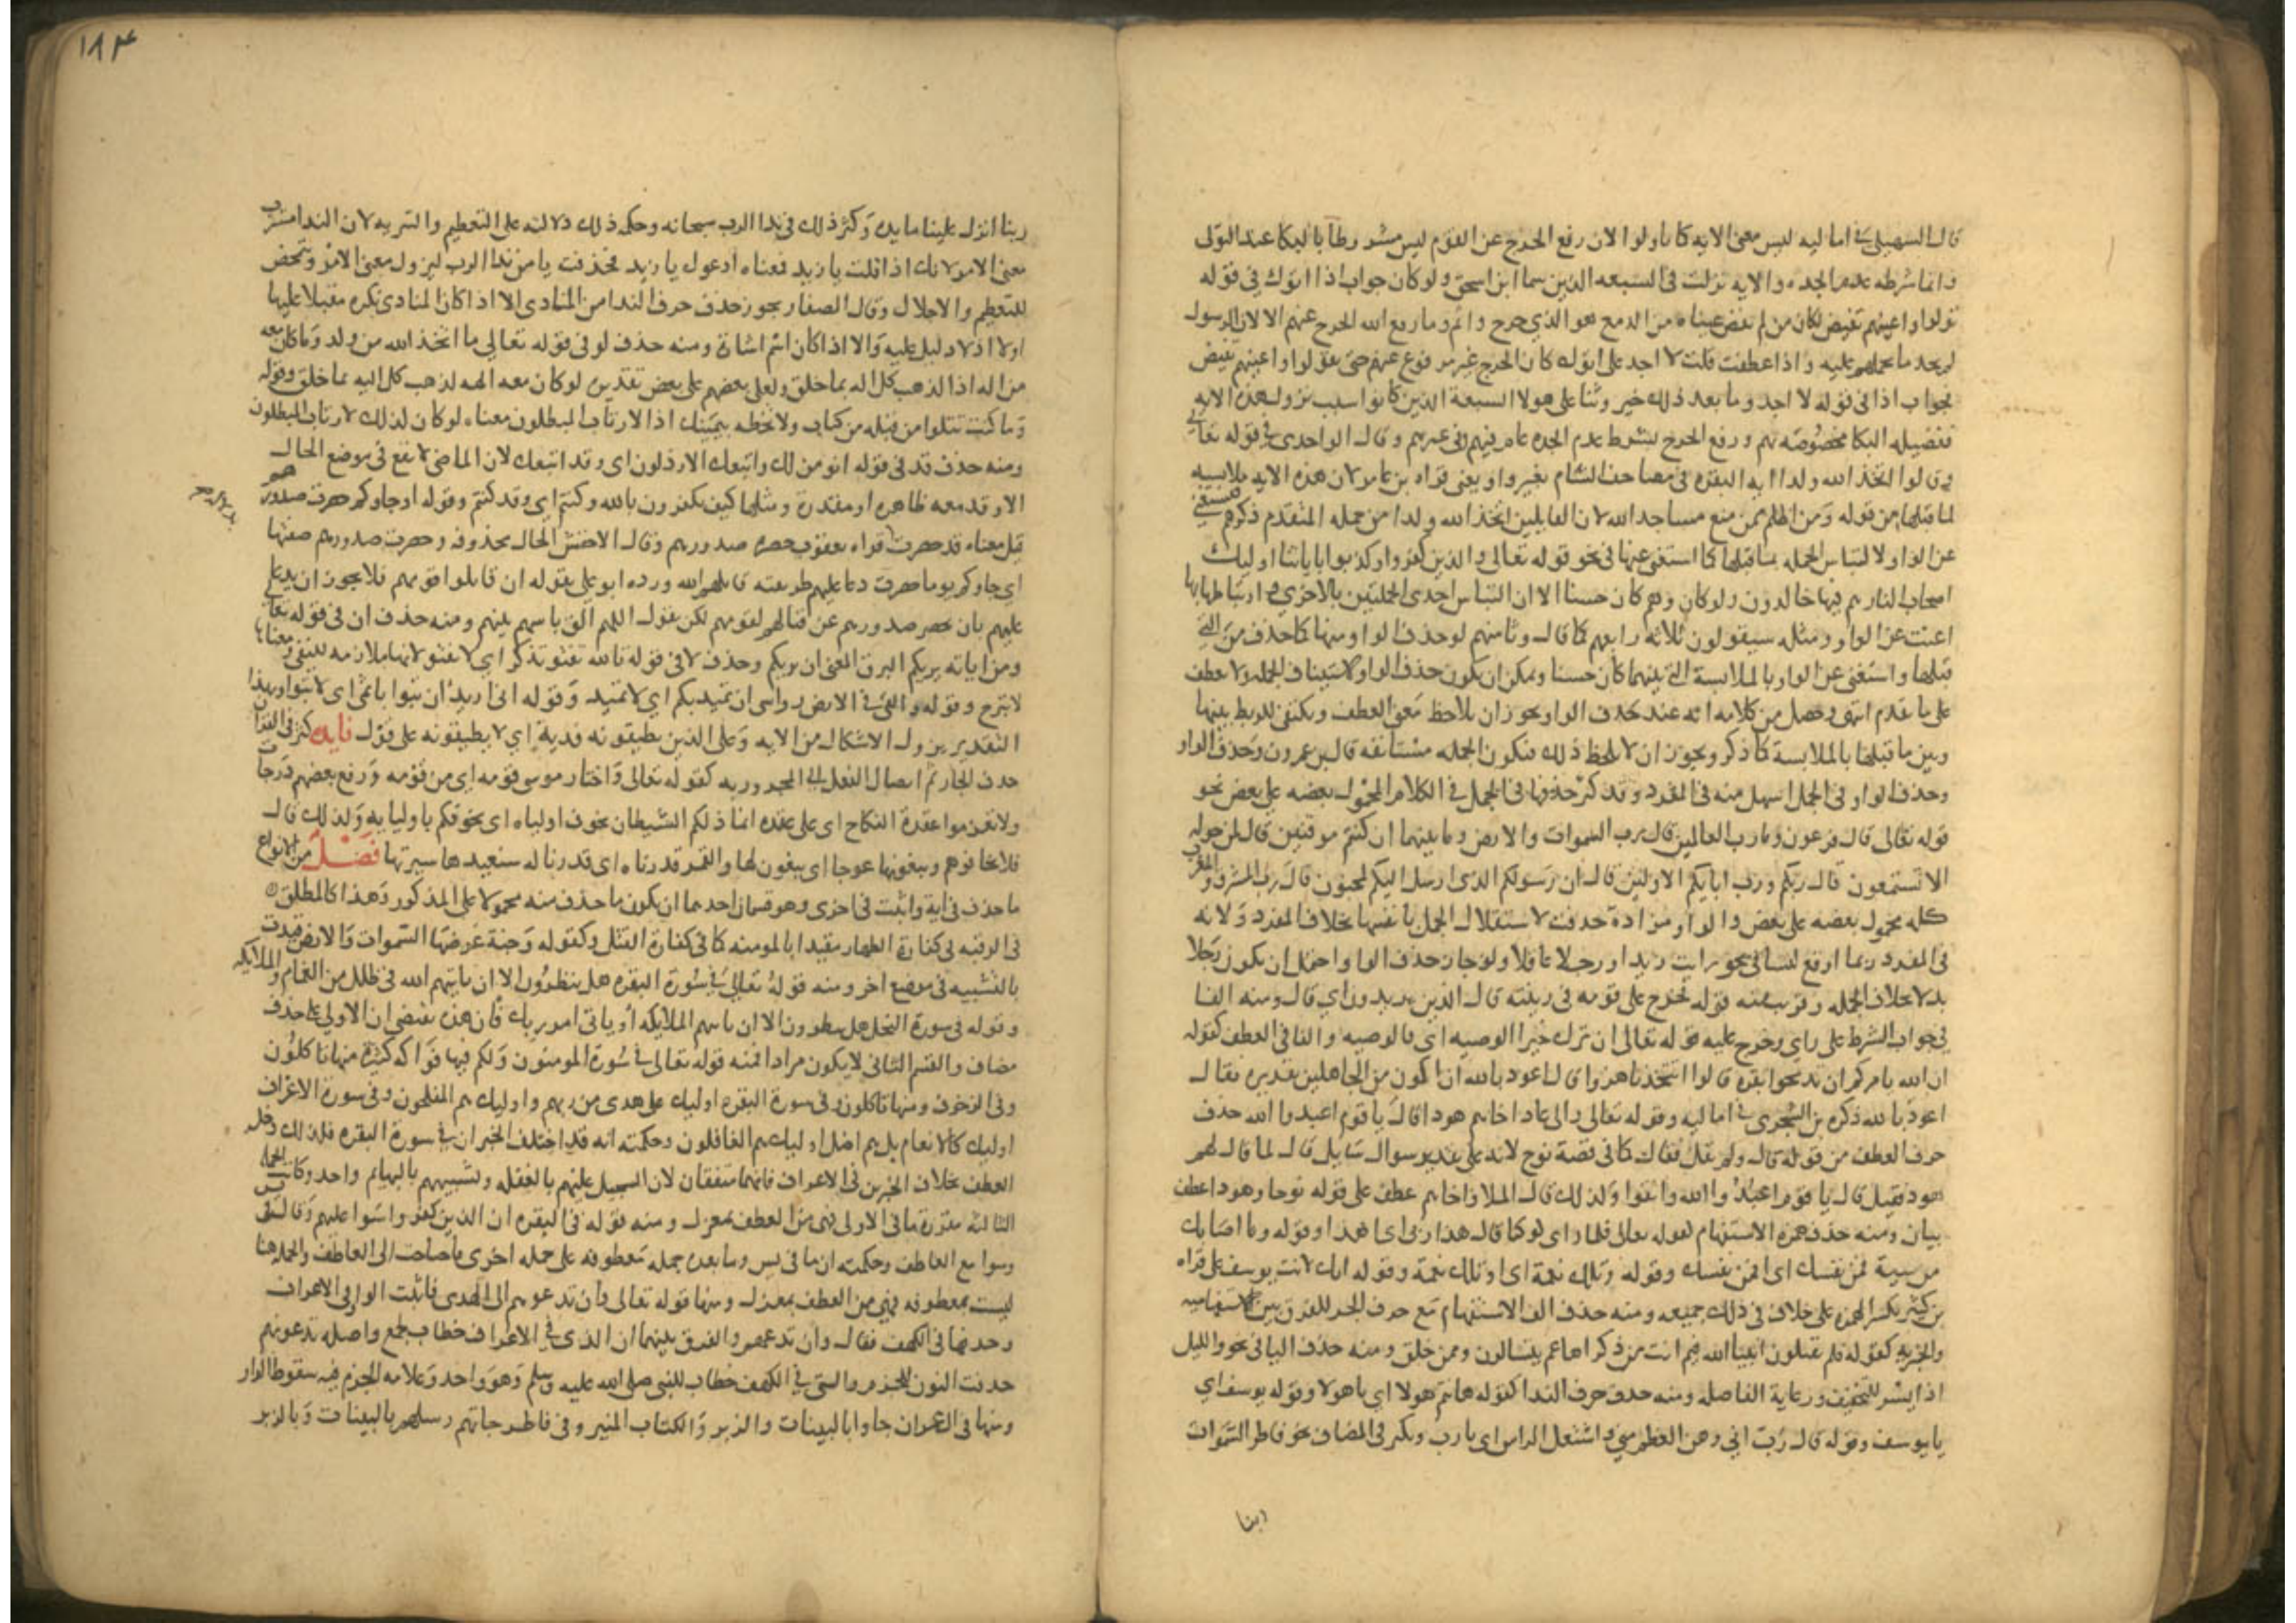 قال السهيلي في اماليه ليس معنى الايه كما تاولوا لان رفع الحرج عن القوم ليس مشروطا بالبكا عند التولى
وانما شرطه عدم الجده والايه نزلت في السبعه الذين سما ابن اسحق ولو كان جواب اذا اتوك في قوله
تولوا واعينهم تفيض لكان من لم تفض عيناه من الدمع هو الذي حرج واثم وما رفع الله الحرج عنهم الا لان الرسول
لم يجد ما يحملهم عليه واذا عطفت قلت لا اجد على اتوك كان الحرج غير مرفوع عنهم حتى يقولوا واعينهم تفيض
فجواب اذا في قوله لا اجد وما بعد ذلك خبر وثنا على هولا السبعة الذين كانوا سبب نزول هذه الايه
ففضيله البكا مخصوصه بهم ورفع الحرج بشرط عدم الجده عام فيهم وفى غيرهم وقال الواحدى في قوله تعالى
وقالوا اتخذ الله ولدا ايه البقره في مصاحف الشام بغير واو يعنى قراه بن عامر لان هذه الايه ملابسه
لما قبلها من قوله ومن اظلم ممن منع مساجد الله لان القايلين اتخذ الله ولدا من جمله المتقدم ذكرهم فيستغني
عن الواو لالتباس الجمله بما قبلها كما استغنى عنها في نحو قوله تعالى والذين كفروا وكذبوا باياتنا اوليك
اصحاب النار هم فيها خالدون ولو كان وهم كان حسنا الا ان التباس احدى الجملتين بالاخرى وارتباطها بها
اغنت عن الواو ومثله سيقولون ثلاثه رابعهم كما قال وثامنهم لو حذف الواو منها كما حذف من التي
قبلها واستغنى عن الواو بالملابسة التي بينهما كان حسنا ويمكن ان يكون حذف الواو لاستيناف الجمله ولا عطف
على ما تقدم انتهى وحصل من كلامه انه عند حذف الواو يجوز ان يلاحظ معنى العطف ويكتفى للربط بينها
وبين ما قبلها بالملابسة كما ذكر ويجوز ان لا يلحظ ذلك فتكون الجمله مستانفه قال بن عمرون وحذف الواو
وحذف الواو في الجمل اسهل منه في المفرد وقد كثر حذفها في الجمل في الكلام المحمول بعضه على بعض نحو
قوله تعالى قال فرعون وما رب العالمين قال رب السموات والارض وما بينهما ان كنتم موقنين قال لمن حوله
الا تستمعون قال ربكم ورب ابايكم الاولين قال ان رسولكم الذى ارسل اليكم لمجنون قال رب المشرق والمغرب
كله محمول بعضه على بعض والواو مرادة حذفت لاستقلال الجمل بانفسها بخلاف المفرد ولانه
في المفرد ربما اوقع لبسا في نحو رايت زيدا ورجلا عاقلا ولو جاز حذف الواو احتمل ان يكون رجلا
بدلا بخلاف الجمله وقريب منه قوله فخرج على قومه في زينته قال الذين يريدون اي قال ومنه الفا
في جواب الشرط على راي وخرج عليه قوله تعالى ان ترك خيرا الوصيه اي فالوصيه والفا في العطف كقوله
ان الله يامركم ان تذبحوا بقره قالوا اتتخذنا هزوا قال اعوذ بالله ان اكون من الجاهلين تقديره فقال
اعوذ بالله ذكره بن الشجرى في اماليه وقوله تعالى والى عاد اخاهم هودا قال يا قوم اعبدوا الله حذف
حرف العطف من قوله قال ولم يقل فقال كما في قصة نوح لانه على تقدير سوال سايل قال لما قال لهم
هود فقيل قال يا قوم اعبدوا الله واتقوا ولذلك قال الملا واخاهم عطف على قوله نوحا وهودا عطف
بيان ومنه حذف همزه الاستفهام كقوله تعالى فلما راى كوكبا قال هذا ربى اى اهذا وقوله وما اصابك
من سيئة فمن نفسك اى افمن نفسك وقوله وتلك نعمة اى اوتلك نعمة وقوله انك لانت يوسف على قراه
بن كثير بكسر الهمزه على خلاف في ذلك جميعه ومنه حذف الف الاستفهام مع حرف الجر للفرق بين الاستفهاميه
والخبريه كقوله فلم تقتلون انبيا الله فيم انت من ذكراها عم يتسالون ومم خلق ومنه حذف اليا في نحو والليل
اذا يسر للتخفيف ورعاية الفاصله ومنه حذف حرف الندا كقوله هانتم هولا اي يا هولا وقوله يوسف اي
يا يوسف وقوله قال رب اني وهن العظم مني واشتعل الراس اى يا رب ويكثر في المضاف نحو فاطر السموات
ربنا
١٨٣
ربنا انزل علينا مايده وكثر ذلك في ندا الرب سبحانه وحكمه ذلك دلالته على التعظيم والتنزيه لان الندا متشرب
معنى الامر لانك اذا قلت يا زيد فمعناه ادعوك يا زيد فحذفت يا من ندا الرب ليزول معنى الامر ويتمحض
للتعظيم والاجلال وقال الصفار يجوز حذف حرف الندا من المنادى الا اذا كان المنادى نكره مقبلا عليها
او لا اذ لا دليل عليه والا اذا كان اسم اشارة ومنه حذف لو في قوله تعالى ما اتخذ الله من ولد وما كان معه
من اله اذا لذهب كل اله بما خلق ولعلى بعضهم على بعض تقديره لو كان معه الهه لذهب كل اله بما خلق وقوله
وما كنت تتلوا من قبله من كتاب ولا تخطه بيمينك اذا لارتاب المبطلون معناه لو كان كذلك لارتاب المبطلون
ومنه حذف قد في قوله انومن لك واتبعك الارذلون اى وقد اتبعك لان الماضى لا يقع في موضع الحال
الا وقد معه ظاهره او مقدرة ومثلها كيف تكفرون بالله وكنتم اي وقد كنتم وقوله او جاوكم حصرت صدورهم
قيل معناه قد حصرت قراه يعقوب حصره صدورهم وقال الاخفش الحال محذوفه وحصرت صدورهم صفتها
اي جاوكم يوما حصرت دعا عليهم طريقته قاتلهم الله ورده ابو على بقوله ان قاتلوا قومهم فلا يجوز ان يدعى
عليهم بان تحصر صدورهم عن قتالهم لقومهم لكن بقول اللهم الق باسهم بينهم ومنه حذف ان في قوله تعالى
ومن اياته يريكم البرق المعنى ان يريكم وحذف لا في قوله تالله تفتو تذكر اى لا تفتو لانها ملازمه للنفى ومعناها
لا تبرح وقوله والقى في الارض رواسى ان تميد بكم اي لا تميد وقوله انى اريد ان تبوا باثمى اى لا تبوا وبهذا
التقدير يزول الاشكال من الايه وعلى الذين يطيقونه فدية اي لا يطيقونه على قول فايده كثر في القران
حذف الجار ثم ايصال الفعل الى المجرور به كقوله تعالى واختار موسى قومه اى من قومه ورفع بعضهم درجات
ولا تعزموا عقدة النكاح اى على عقده انما ذلكم الشيطان يخوف اولياه اى يخوفكم باوليايه ولذلك قال
فلا تخافوهم ويبغونها عوجا اى يبغون لها والقمر قدرناه اى قدرنا له سنعيدها سيرتها فصل من الانواع
ما حذف في اية واثبت في اخرى وهو قسمان احدهما ان يكون ما حذف منه محمولا على المذكور وهذا كالمطلق
في الرقبه في كفارة الظهار مقيدا بالمومنه كما في كفارة القتل وكقوله وجنة عرضها السموات والارض قيدت
بالتشبيه في موضع اخر ومنه قوله تعالى في سورة البقره هل ينظرون الا ان ياتيهم الله في ظلل من الغمام والملايكه
وقوله في سورة النحل هل ينظرون الا ان تاتيهم الملايكه او ياتى امر ربك فان هذه تقتضى ان الاولى على حذف
مضاف والقسم الثانى لا يكون مرادا فمنه قوله تعالى في سورة المومنون ولكم فيها فواكه كثيرة منها تاكلون
وفى الزخرف ومنها تاكلون وفى سورة البقره اوليك على هدى من ربهم واوليك هم المفلحون وفى سورة الاعراف
اوليك كالانعام بل هم اضل اوليك هم الغافلون وحكمته انه قد اختلف الخبران في سورة البقره فلذلك دخل
العطف بخلاف الخبرين في الاعراف فانهما متفقان لان التسجيل عليهم بالغفله وتشبيههم بالبهايم واحد وكانت الجمله
الثانية مقررة ما في الاولى فهى من العطف بمعزل ومنه قوله في البقره ان الذين كفروا سوا عليهم وقال في يس
وسوا مع العاطف وحكمته ان ما في يس وما بعده جمله معطوفه على جمله اخرى فاحتاجت الى العاطف والجمله هنا
ليست بمعطوفه فهي من العطف بمعزل ومنها قوله تعالى وان تدعوهم الى الهدى فاثبت الواو في الاعراف
وحذفها في الكهف فقال وان تدعهم والفرق بينهما ان الذى في الاعراف خطاب لجمع واصله تدعونهم
حذفت النون للجزم والتى في الكهف خطاب للنبى صلى الله عليه وسلم وهو واحد وعلامه الجزم فيه سقوط الواو
ومنها في ال عمران جاوا بالبينات والزبر والكتاب المنير وفى فاطر جاتهم رسلهم بالبينات وبالزبر